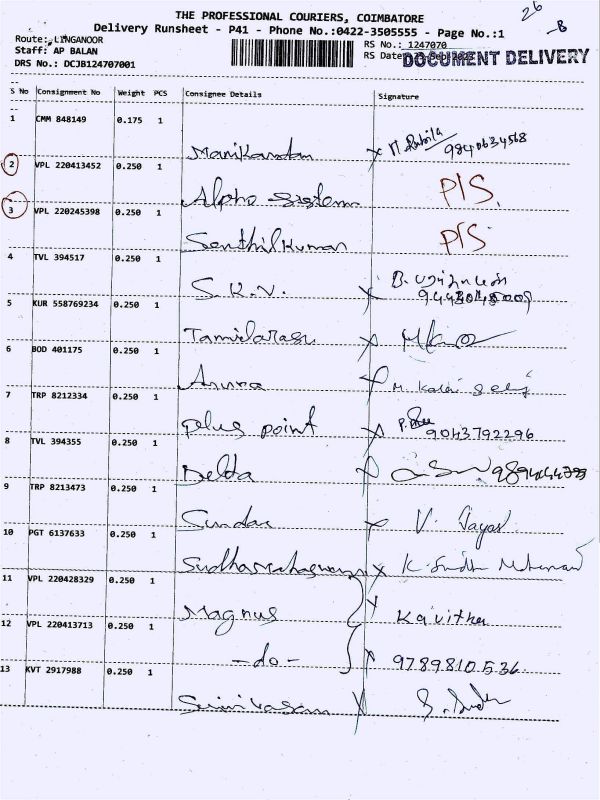 26
-B
THE PROFESSIONAL COURIERS, COIMBATORE
Delivery Runsheet - P41 - Phone No.:0422-3505555 - Page No.:1
Route: LINGANOOR
Staff: AP BALAN
DRS No.: DCJB124707001
RS No.: 1247070
RS Date:
DOCUMENT DELIVERY
S No Consignment No Weight PCS Consignee Details Signature
1 CMM 848149 0.175 1
Manikandan x 9840634568
2 VPL 220413452 0.250 1
Alpha sistem P/S.
3 VPL 220245398 0.250 1
Senthilkumar P/S
4 TVL 394517 0.250 1
S.K.V. x B.
5 KUR 558769234 0.250 1
Tamilarasu x
6 BOD 401175 0.250 1
M. Kalai Selvi
7 TRP 8212334 0.250 1
plus point x 9043792296
8 TVL 394355 0.250 1
Delta x
9 TRP 8213473 0.250 1
Sundar x V. Jaya
10 PGT 6137633 0.250 1
x K. Sudh
11 VPL 220428329 0.250 1
Magnus x Kavitha
12 VPL 220413713 0.250 1
-do- x 9789810536
13 KVT 2917988 0.250 1
Srinivasan x